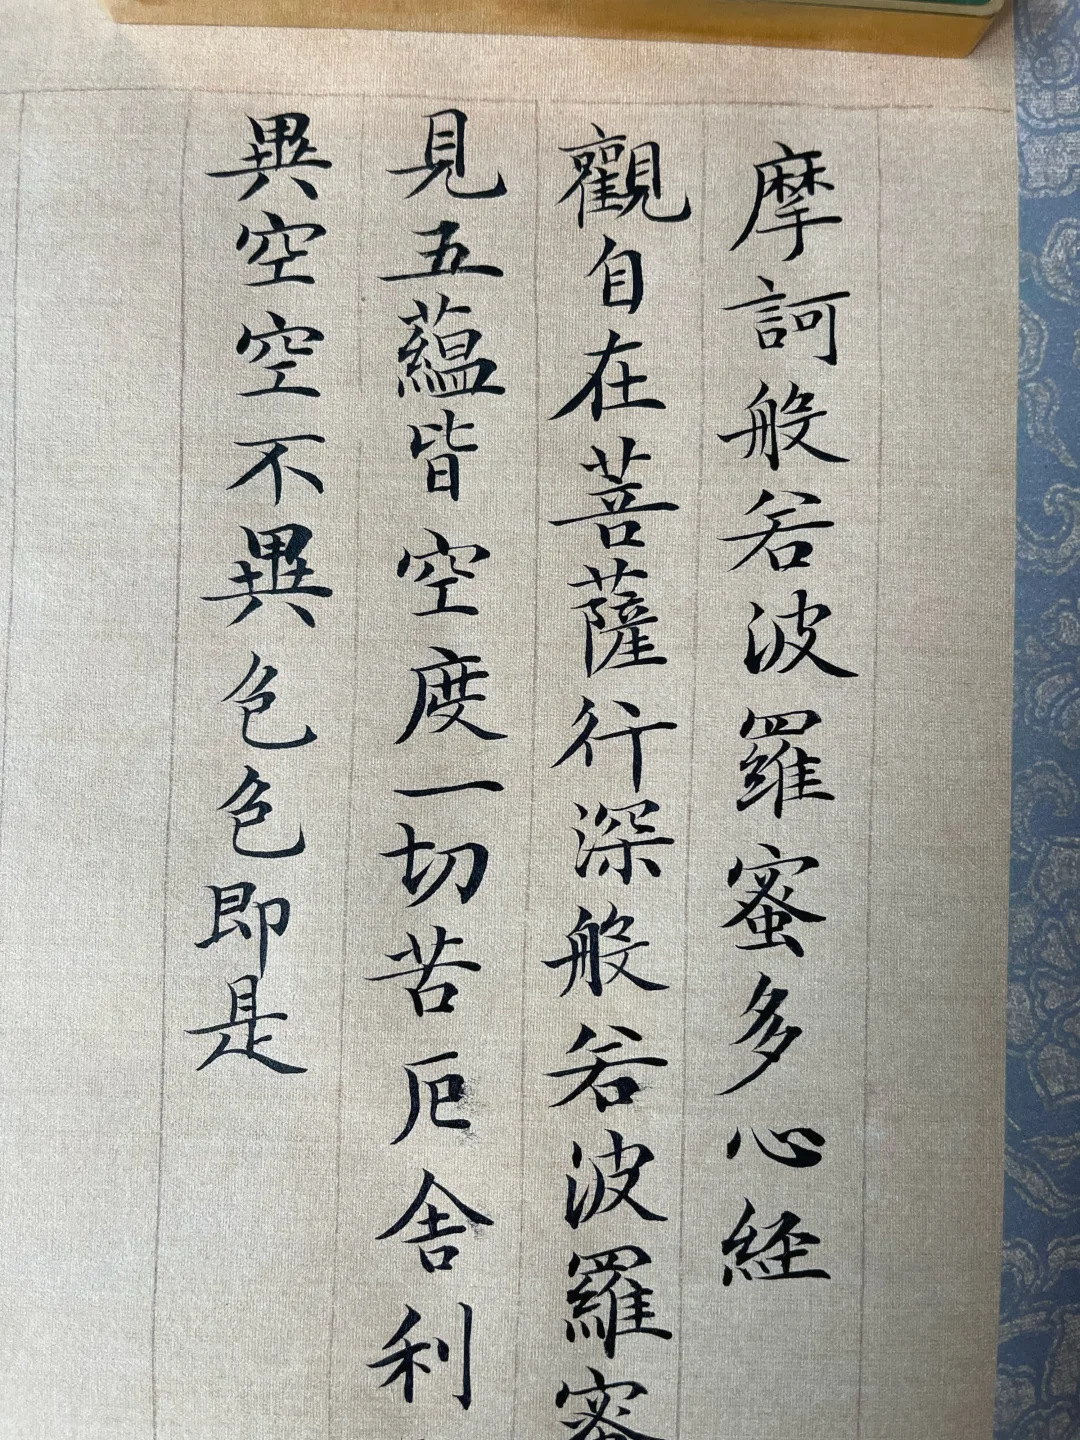 摩訶般若波羅蜜多心経
觀自在菩薩行深般若波羅蜜
見五蘊皆空度一切苦厄舎利
異空空不異色色即是